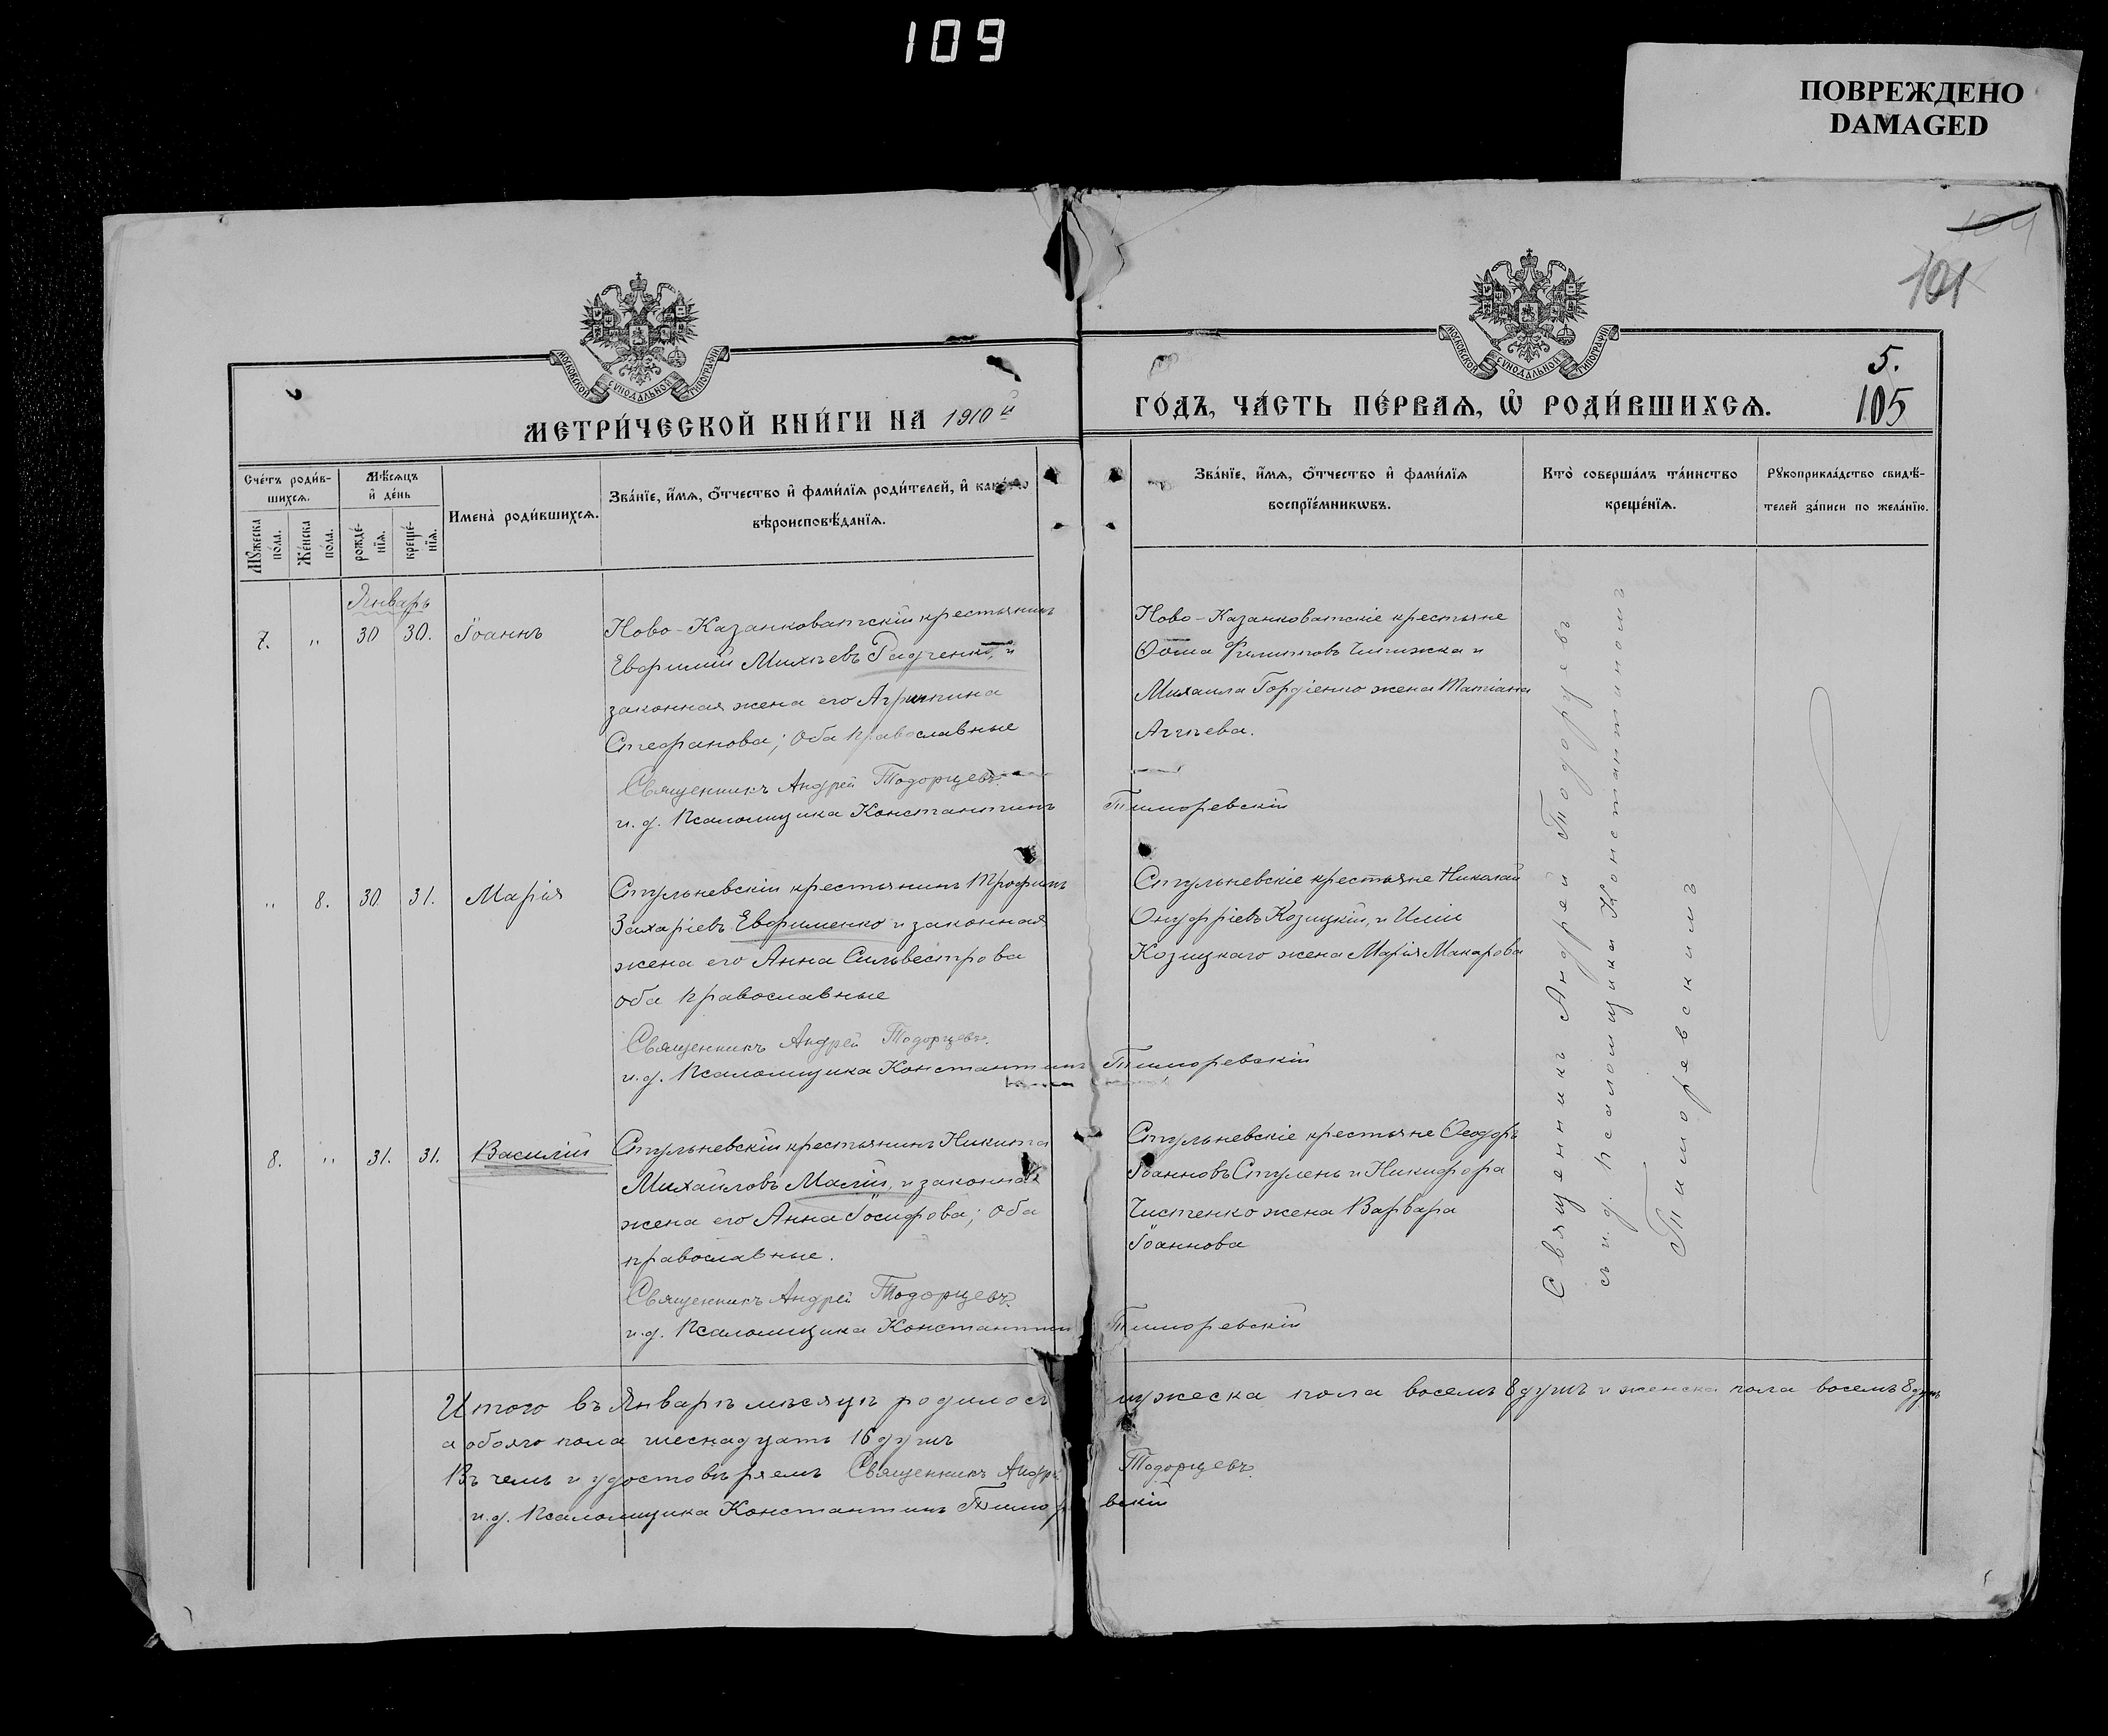 109
ПОВРЕЖДЕНО
DAMAGED
101
5.
105
МОСКОВСКОЙ СУНОДАЛЬНОЙ ТИПОГРАФІИ
МОСКОВСКОЙ СУНОДАЛЬНОЙ ТИПОГРАФІИ
МЕТРИ́ЧЕСКОЙ КНИ́ГИ НА 1910й ГО́ДЪ, ЧА́СТЬ ПЕ́РВАѦ, Ѡ҆ РОДИ́ВШИХСѦ.
Сче́тъ роди́в-
шихсѧ.
Мꙋжеска по́ла.
Же́нска по́ла.
Мѣ́сѧцъ
и҆ де́нь
рожде́-
нїѧ.
креще́-
нїѧ.
Имена̀ роди́вшихсѧ.
Зва́нїе, и҆́мѧ, ѻ҆́тчество и҆ фами́лїѧ роди́телей, и҆ како́гѡ
вѣроисповѣ́данїѧ.
Зва́нїе, и҆́мѧ, ѻ҆́тчество и҆ фами́лїѧ
воспрїе́мникѡвъ.
Кто̀ соверша́лъ та́инство
креще́нїѧ.
Рꙋкоприкла́дство свидѣ́-
телей за́писи по жела́нїю.
Январь
7. " 30 30. Іоаннъ
Ново-Казанковатскій крестьянинъ
Евфимій Михѣевъ Радченко, и
законная жена его Агрипина
Стефанова; оба православные
Священникъ Андрей Тодорцевъ.
и. д. Псаломщика Константинъ Тиморевскій
Ново-Казанковатскіе крестьяне
Ѳома Филипповъ Чипижка и
Михаила Гордіенко жена Татіана
Аггѣева.
" 8. 30. 31. Марія
Стульневскій крестьянинъ Трофимъ
Захаріевъ Евфименко и законная
жена его Анна Сильвестрова
оба православные
Священникъ Андрей Тодорцевъ.
и. д. Псаломщика Константинъ Тиморевскій
Стульневскіе крестьяне Николай
Онуфріевъ Козицкій, и Иліи
Козицкаго жена Марія Макарова
8. " 31. 31. Василій
Стульневскій крестьянинъ Никита
Михайловъ Малій, и законная
жена его Анна Іосифова; оба
православные.
Священникъ Андрей Тодорцевъ.
и. д. Псаломщика Константинъ Тиморевскій
Стульневскіе крестьяне Ѳеодоръ
Іоанновъ Стулень и Никифора
Чистенко жена Варвара
Іоаннова
Священникъ Андрей Тодорцевъ
съ и. д. псаломщика Константиномъ
Тиморевскимъ
Итого въ Январѣ мѣсяцѣ родилось мужеска пола восемь 8 душъ и женска пола восемь 8 душъ
а обоего пола шеснадцать 16 душъ
Въ чемъ и удостовѣряемъ Священникъ Андрей Тодорцевъ.
и. д. Псаломщика Константинъ Тиморевскій